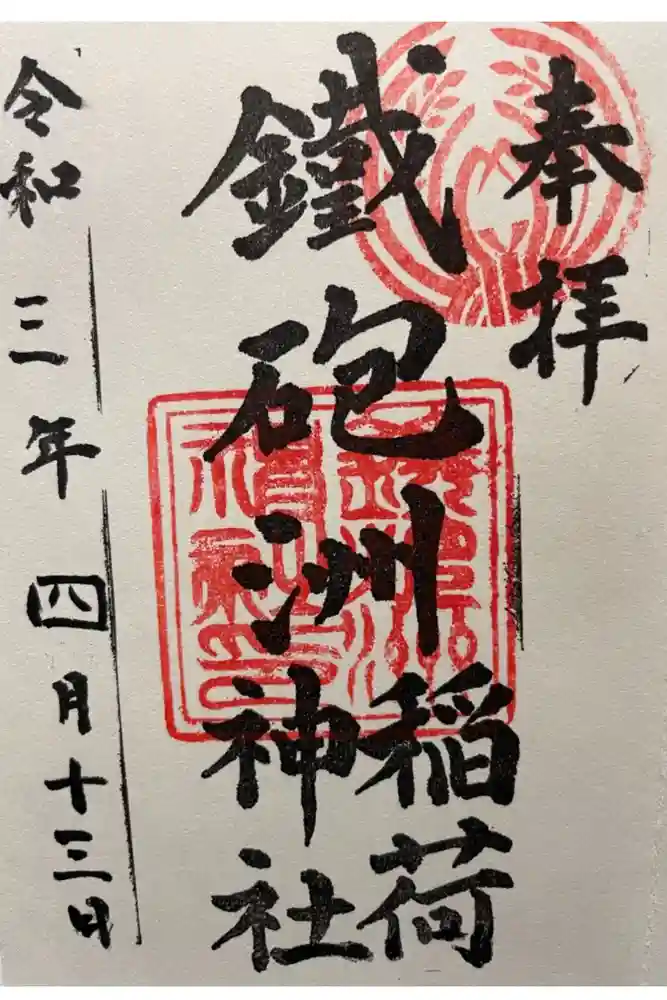 奉拝
鐵砲洲
稲荷
神社
令和三年四月十三日